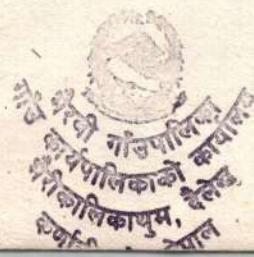 भैरवी गाँउपालिका
गाउँ कार्यपालिकाको कार्यालय
भैरीकालिकाथुम, दैलेख
कर्णाली नेपाल